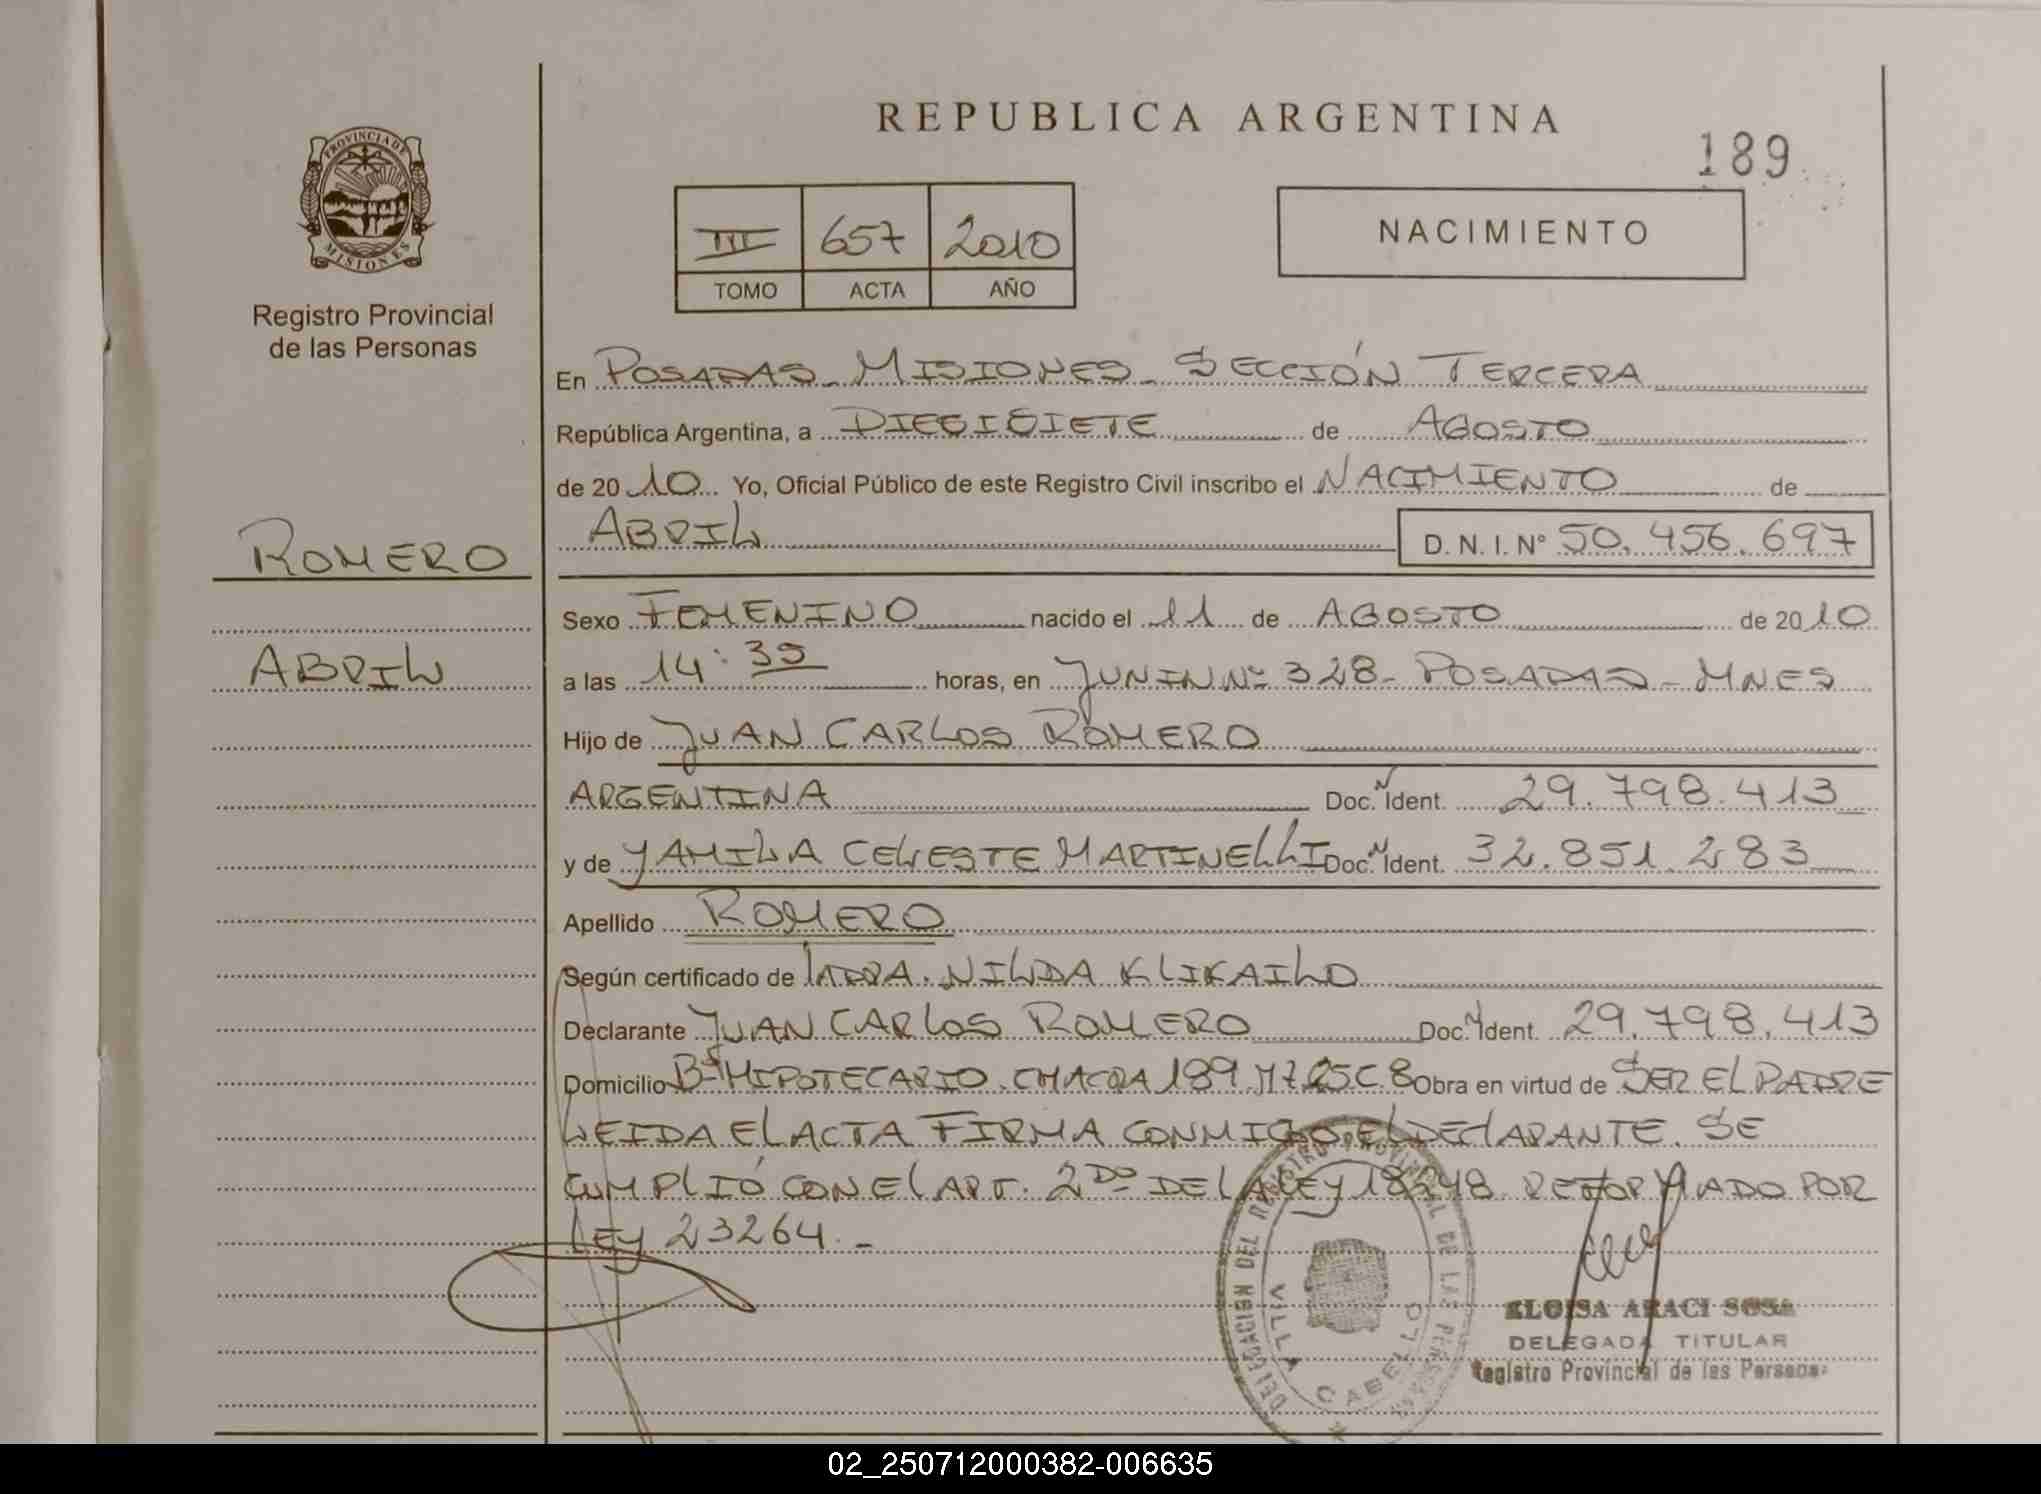 REPUBLICA ARGENTINA
189
PROVINCIA DE
MISIONES
Registro Provincial
de las Personas
III 657 2010
TOMO ACTA AÑO
NACIMIENTO
En POSADAS - MISIONES - SECCIÓN TERCERA
República Argentina, a DIECISIETE de AGOSTO
de 2010 Yo, Oficial Público de este Registro Civil inscribo el NACIMIENTO de
ROMERO
ABRIL D. N. I. N° 50.456.697
Sexo FEMENINO nacido el 11 de AGOSTO de 2010
ABRIL
a las 14:35 horas, en JUNIN Nº 328 - POSADAS - MNES
Hijo de JUAN CARLOS ROMERO
ARGENTINA Doc. Ident. 29.798.413
y de YAMILA CELESTE MARTINELLI Doc. Ident. 32.851.283
Apellido ROMERO
Según certificado de NILDA KLIKAILO
Declarante JUAN CARLOS ROMERO Doc. Ident. 29.798.413
Domicilio Bº HIPOTECARIO. CHACRA 189 C.8 Obra en virtud de SER EL PADRE
LEIDA EL ACTA FIRMA CONMIGO EL DECLARANTE. SE
CUMPLIÓ CON EL ART. 2DO DE LA LEY 18248 REFORMADO POR
LEY 23264.-
DELEGACION DEL REGISTRO PROVINCIAL DE LAS PERSONAS
VILLA CABELLO
ELOISA ARACI SOSA
DELEGADA TITULAR
Registro Provincial de las Personas
02_250712000382-006635